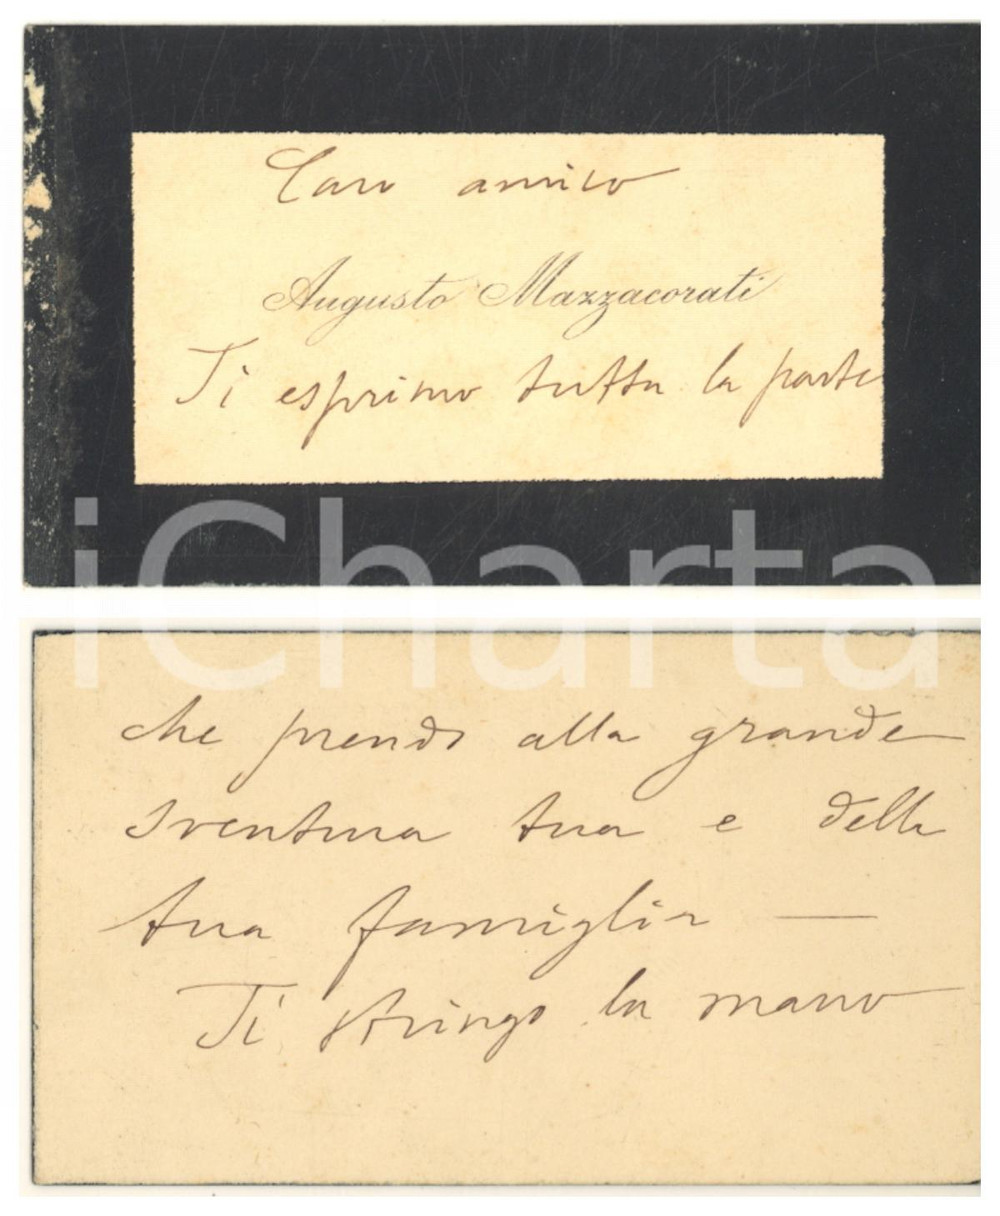 Caro amico
Augusto Mazzacorati
Ti esprimo tutta la parte
iCharta
che prendo alla grande
sventura tua e della
tua famiglia —
Ti stringo la mano